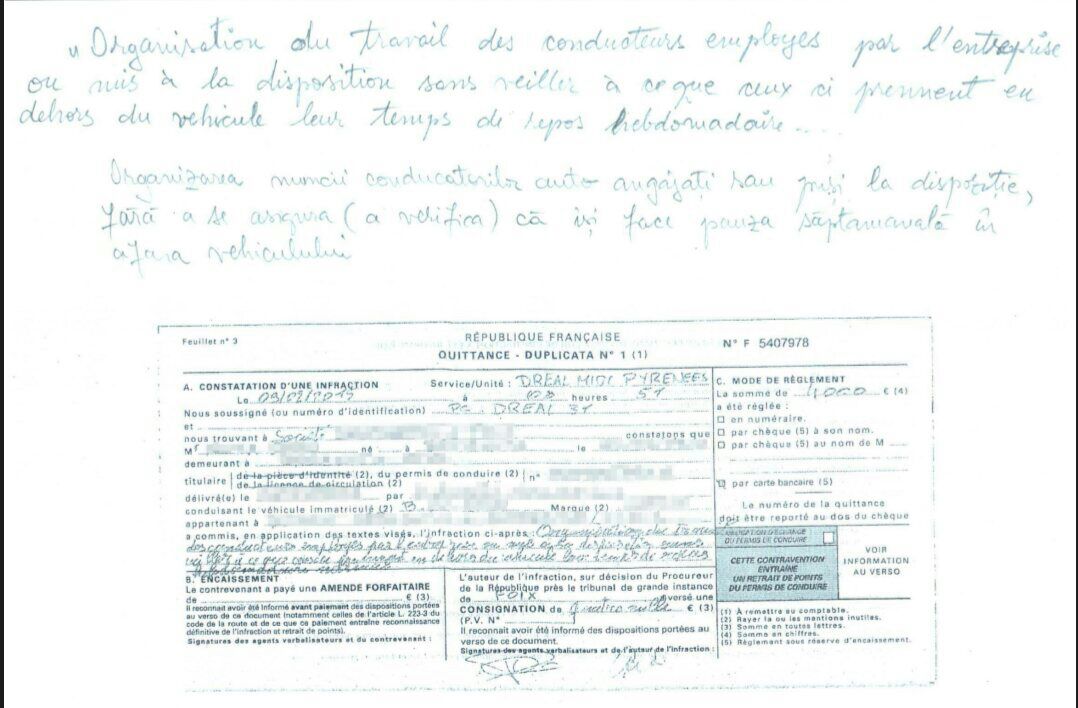 „ Organisation du travail des conducteurs employes par l'entreprise
ou mis à la disposition sans veiller à ce que ceux ci prennent en
dehors du vehicule leur temps de repos hebdomadaire....
Organizarea muncii conducatorilor auto angajați sau puși la dispoziție,
fără a se asigura (a verifica) că iși face pauza săptamanală în
afara vehiculului
Feuillet n° 3
RÉPUBLIQUE FRANÇAISE
QUITTANCE - DUPLICATA N° 1 (1)
N° F 5407978
A. CONSTATATION D'UNE INFRACTION
Service/Unité : DREAL MIDI PYRENEES
Le 09/02/2017 à heures 51
Nous soussigné (ou numéro d'identification) DREAL 31
et
nous trouvant à Société constatons que
M né à le
demeurant à
titulaire de la pièce d'identité (2), du permis de conduire (2) n°
de la licence de circulation (2)
délivré(e le par
conduisant le véhicule immatriculé (2) B Marque (2)
appartenant à
a commis, en application des textes visés, l'infraction ci-après : Organisation du travail
des conducteurs employes par l'entreprise ou mis à la disposition sans
veiller à ce que ceux ci prennent en dehors du vehicule leur temps de repos
hebdomadaire
B. ENCAISSEMENT
Le contrevenant a payé une AMENDE FORFAITAIRE
de € (3)
Il reconnait avoir été informé avant paiement des dispositions portées
au verso de ce document (notamment celles de l'article L. 223-3 du
code de la route et de ce que ce paiement entraîne reconnaissance
définitive de l'infraction et retrait de points).
Signatures des agents verbalisateurs et du contrevenant :
L'auteur de l'infraction, sur décision du Procureur
de la République près le tribunal de grande instance
de FOIX a versé une
CONSIGNATION de Quatre mille € (3)
(P.V. N°
Il reconnait avoir été informé des dispositions portées au
verso de ce document.
Signatures des agents verbalisateurs et de l'auteur de l'infraction :
C. MODE DE RÈGLEMENT
La somme de 4000 € (4)
a été réglée :
en numéraire.
par chèque (5) à son nom.
par chèque (5) au nom de M
par carte bancaire (5)
Le numéro de la quittance
doit être reporté au dos du chèque
OBLIGATION D'ÉCHANGE
DU PERMIS DE CONDUIRE
CETTE CONTRAVENTION
ENTRAÎNE
UN RETRAIT DE POINTS
DU PERMIS DE CONDUIRE
VOIR
INFORMATION
AU VERSO
(1) À remettre au comptable.
(2) Rayer la ou les mentions inutiles.
(3) Somme en toutes lettres.
(4) Somme en chiffres.
(5) Règlement sous réserve d'encaissement.